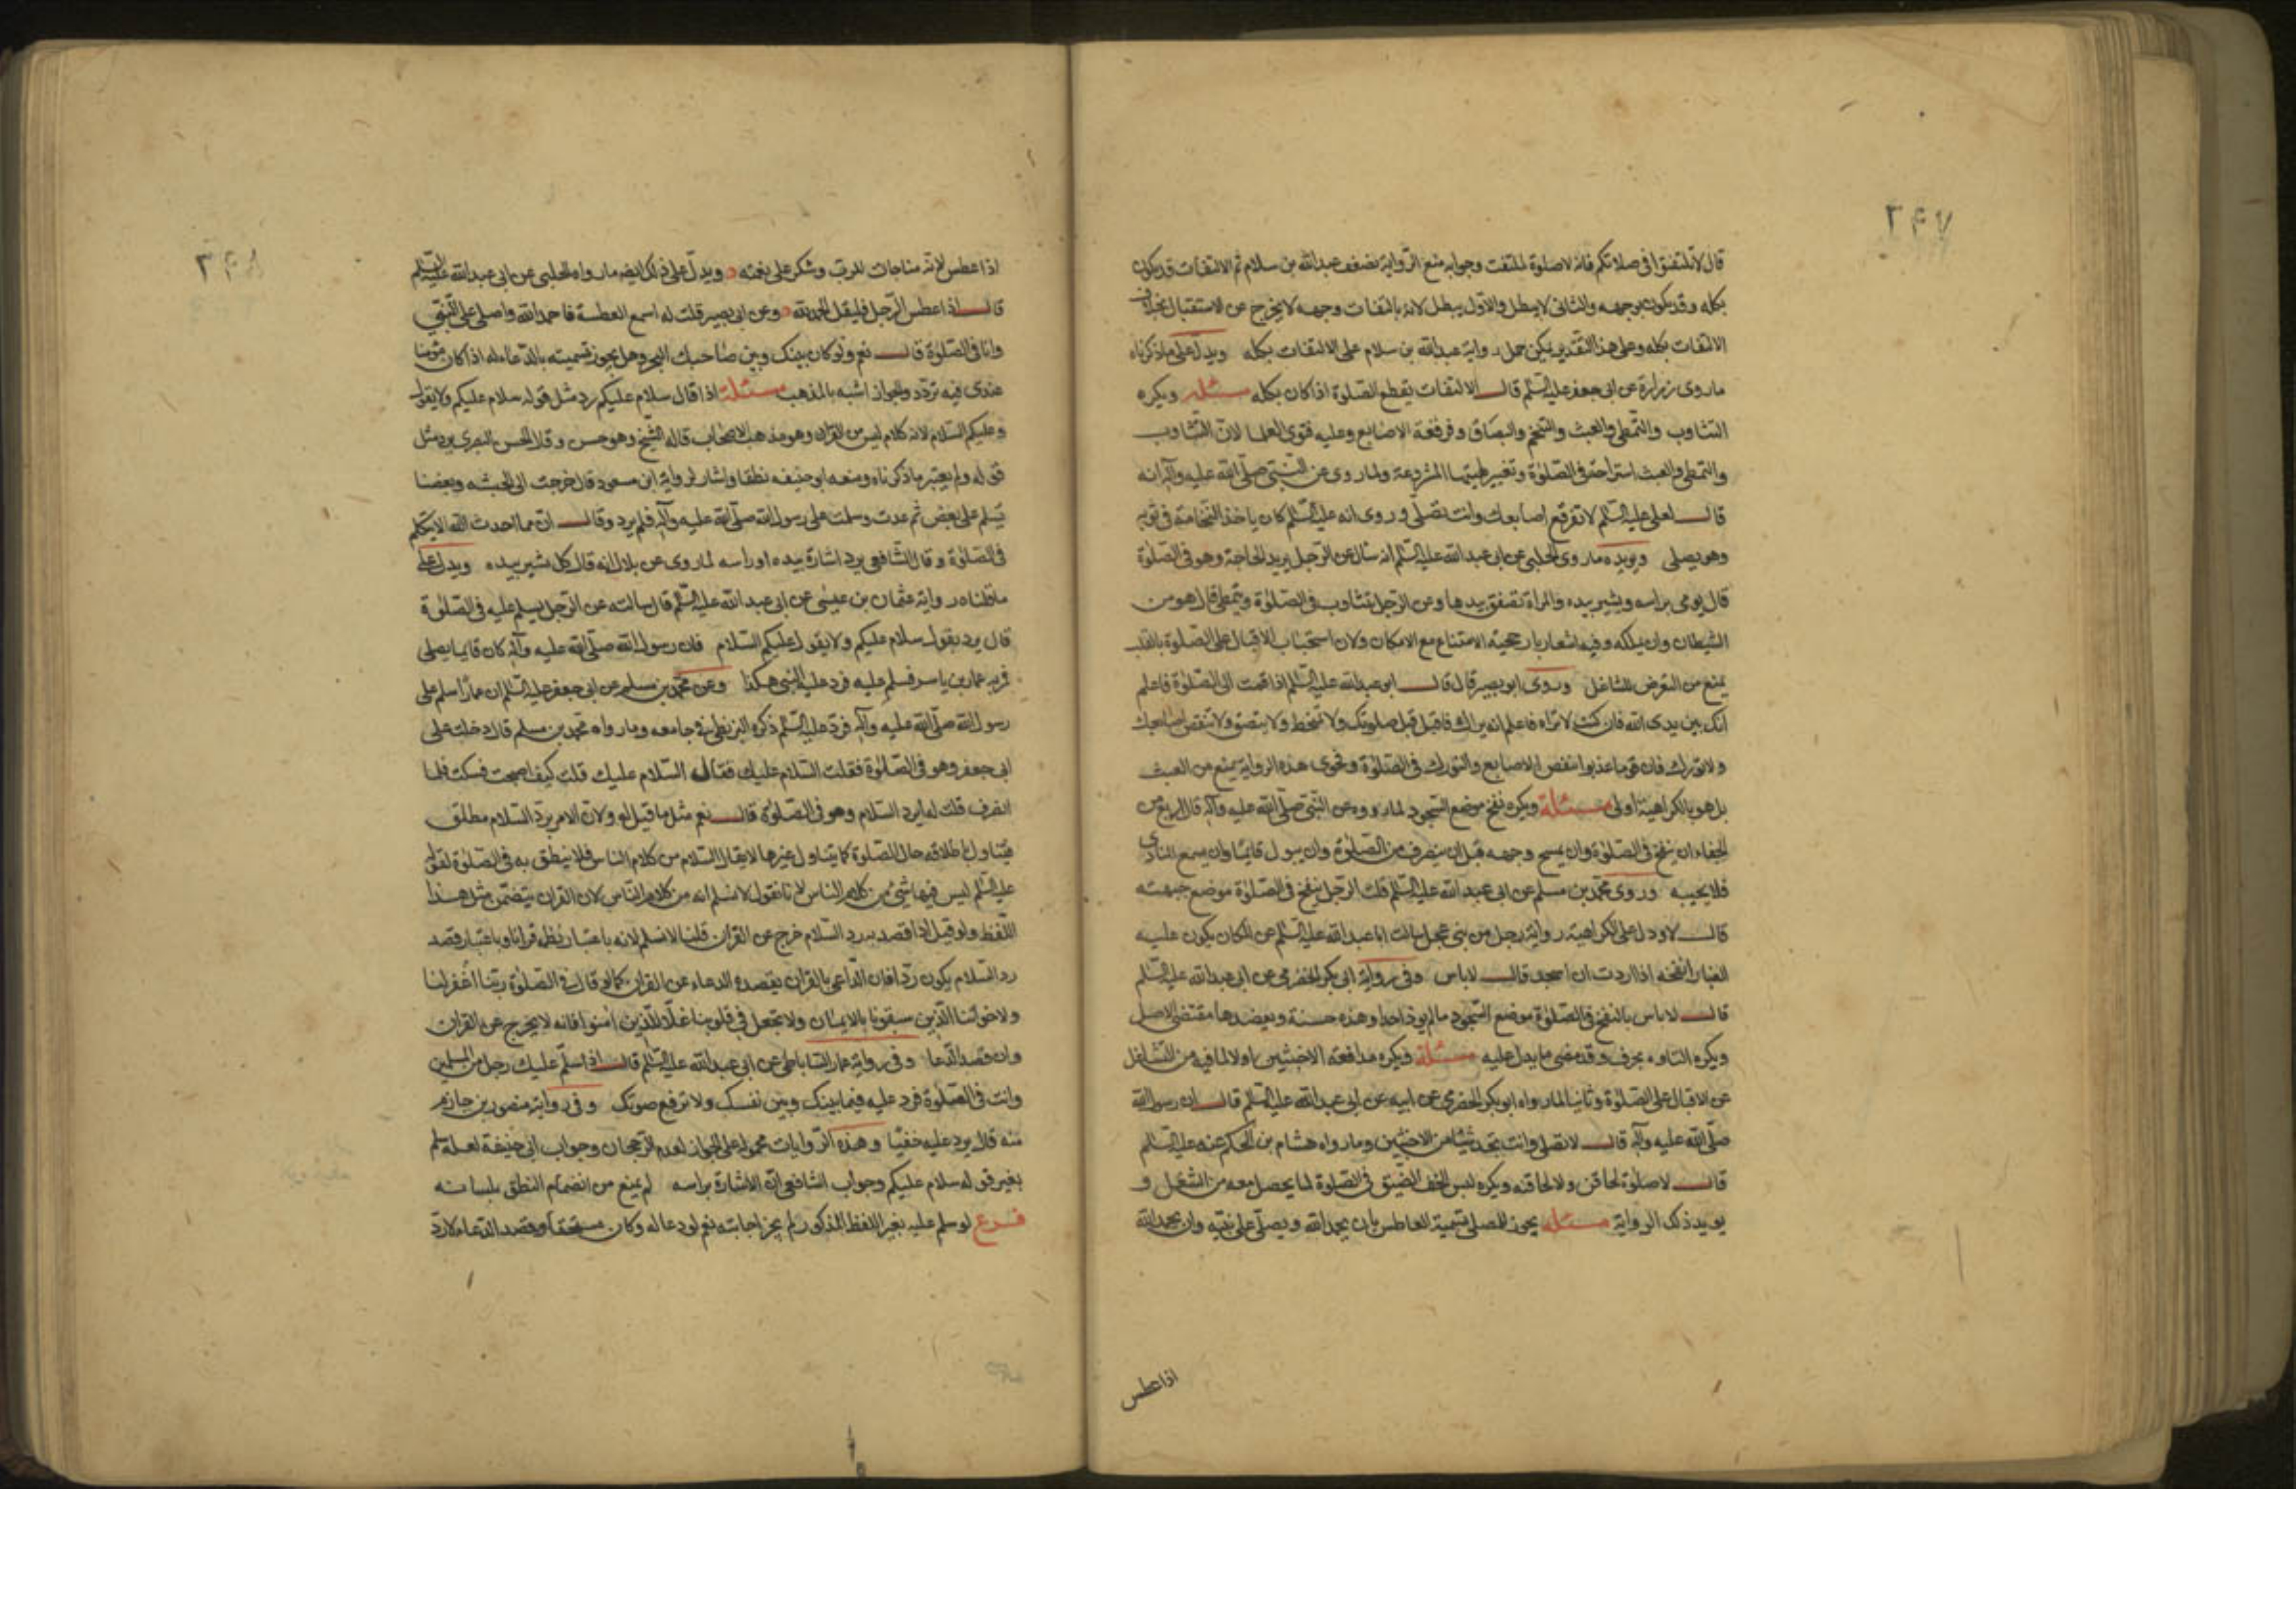 ٣٤٧
قال لا تلتفتوا في صلاتكم فانه لا صلوة لملتفت وجوابه منع الرواية لضعف عبدالله بن سلام ثم الالتفات قد يكون
بكله وقد يكون بوجهه والثاني لا يبطل والاول يبطل لانه بالتفات وجهه لا يخرج عن الاستقبال بخلاف
الالتفات بكله وعلى هذا التقدير يمكن حمل رواية عبدالله بن سلام على الالتفات بكله ويدل على ما ذكرناه
ما روى زرارة عن ابي جعفر عليه السلم قال الالتفات يقطع الصلوة اذا كان بكله مسئلة ويكره
التثاوب والتمطي والعبث والتنخم والبصاق وفرقعة الاصابع وعليه فتوى العلما لان التثاوب
والتمطي والعبث استراحة في الصلوة وتغيير لهيئتها المشروعة ولما روى عن النبي صلى الله عليه وآله انه
قال لعلي عليه السلم لا تفرقع اصابعك وانت تصلي وروى انه عليه السلم كان ياخذ النخامة في ثوبه
وهو يصلي ويويده ما روى الحلبي عن ابي عبدالله عليه السلم انه سال عن الرجل يريد الحاجة وهو في الصلوة
قال يومى براسه ويشير بيده والمراة تصفق بيدها وعن الرجل يتثاوب في الصلوة ويتمطى قال هو من
الشيطان ولن يملكه وفيه اشعار بارجحية الامتناع مع الامكان ولان استحباب الاقبال على الصلوة بالقلب
يمنع من التعرض للشاغل وروى ابو بصير قال قال ابو عبدالله عليه السلم اذا قمت الى الصلوة فاعلم
انك بين يدى الله فان كنت لا تراه فاعلم انه يراك فاقبل قبل صلوتك ولا تمتخط ولا تبصق ولا تنقض اصابعك
ولا تورك فان قوما عذبوا بنقض الاصابع والتورك في الصلوة وفحوى هذه الرواية يمنع من العبث
بل هو بالكراهية اولى مسئلة ويكره نفخ موضع السجود لما رووه عن النبي صلى الله عليه وآله قال اربع من
الجفاء ان ينفخ في الصلوة وان يمسح وجهه قبل ان ينصرف من الصلوة وان يبول قائما وان يسمع المنادى
فلا يجيبه وروى محمد بن مسلم عن ابي عبدالله عليه السلم قلت الرجل ينفخ في الصلوة موضع جبهته
قال لا ودل على الكراهية رواية رجل من بني عجل سالت ابا عبدالله عليه السلم عن المكان يكون عليه
الغبار انفخه اذا اردت ان اسجد قال لاباس وفي رواية ابي بكر الحضرمي عن ابي عبدالله عليه السلم
قال لاباس بالنفخ في الصلوة موضع السجود ما لم يوذ احدا وهذه حسنة ويعضدها مقتضى الاصل
ويكره التاوه بحرف وقد مضى ما يدل عليه مسئلة ويكره مدافعة الاخبثين اولا لما فيه من التشاغل
عن الاقبال على الصلوة وثانيا لما رواه ابو بكر الحضرمي عن ابيه عن ابي عبدالله عليه السلم قال ان رسول الله
صلى الله عليه وآله قال لا تصل وانت تجد شيئا من الاخبثين وما رواه هشام بن الحكم عنه عليه السلم
قال لا صلوة لحاقن ولا لحاقنه ويكره لبس الخف الضيق في الصلوة لما يحصل معه من الشغل و
يويد ذلك الرواية مسئلة يجوز للمصلي تسمية العاطس بان يحمد الله ويصلي على نبيه وان يحمد الله
اذا عطس
٣٤٨
اذا عطس لانه مناجات للرب وشكر على نعمته ويدل على ذلك ايضه ما رواه الحلبي عن ابي عبدالله عليه السلم
قال اذا عطس الرجل فليقل الحمدلله وعن ابي بصير قلت له اسمع العطسة فاحمدالله واصلي على النبي
وانا في الصلوة قال نعم ولو كان بينك وبين صاحبك البحر وهل يجوز تسميته بالدعاء له اذا كان مؤمنا
عندى فيه تردد والجواز اشبه بالمذهب مسئلة اذا قال سلام عليكم رد مثل قوله سلام عليكم ولا يقول
وعليكم السلام لانه كلام ليس من القران وهو مذهب الاصحاب قاله الشيخ وهو حسن وقال الحسن البصرى يرد مثل
قوله ولم يعتبر ما ذكرناه ومنعه ابو حنيفه نطقا واشار لرواية ابن مسعود قال خرجت الى الحبشه وبعضنا
يسلم على بعض ثم عدت وسلمت على رسول الله صلى الله عليه وآله فلم يرد وقال ان مما احدث الله الا يتكلم
في الصلوة وقال الشافعي يرد اشارة بيده او راسه لما روى عن بلال انه قال كان يشير بيده ويدل على
ما قلناه رواية عثمان بن عيسى عن ابي عبدالله عليه السلم قال سالته عن الرجل يسلم عليه في الصلوة
قال يرد يقول سلام عليكم ولا يقول عليكم السلام فان رسول الله صلى الله عليه وآله كان قايما يصلى
فمر به عمار بن ياسر فسلم عليه فرد عليه النبي هكذا وعن محمد بن مسلم عن ابي جعفر عليه السلم ان عمارا سلم على
رسول الله صلى الله عليه وآله فرد عليه السلم ذكره البزنطي في جامعه وما رواه محمد بن مسلم قال دخلت على
ابي جعفر وهو في الصلوة فقلت السلام عليك فقال السلام عليك قلت كيف اصبحت فسكت فلما
انصرف قلت له ايرد السلام وهو في الصلوة قال نعم مثل ما قيل له ولان الامر برد السلام مطلق
فيتناول باطلاقه حال الصلوة كما يتناول غيرها لا يقال السلام من كلام الناس فلا ينطق به في الصلوة لقوله
عليه السلم ليس فيها شئ من كلام الناس لانا نقول لا نسلم انه من كلام الناس لان القران يتضمن مثل هذا
اللفظ ولو قيل اذا قصد به رد السلام خرج عن القران قلنا لا نسلم لانه باعتبار نظمه قرانا وباعتبار قصد
رد السلام يكون ردا فان الداعي بالقران يقصد به الدعاء عن القران كما لو قال في الصلوة ربنا اغفر لنا
ولاخواننا الذين سبقونا بالايمان ولا تجعل في قلوبنا غلا للذين امنوا فانه لا يخرج عن القران
وان قصد الدعا وفي رواية عمار الساباطي عن ابي عبدالله عليه السلم قال اذا سلم عليك رجل من المسلمين
وانت في الصلوة فرد عليه فيما بينك وبين نفسك ولا ترفع صوتك وفي رواية منصور بن حازم
عنه قال يرد عليه خفيا وهذه الروايات محمولة على الجواز لعدم الرجحان وجواب ابي حنيفة لعله سلم
بغير قوله سلام عليكم وجواب الشافعي ان الاشارة براسه لم يمنع من انضمام النطق بلسانه
فرع لو سلم عليه بغير اللفظ المذكور لم يجز اجابته نعم لو دعا له وكان مستحقا وقصد الدعاء لا رد